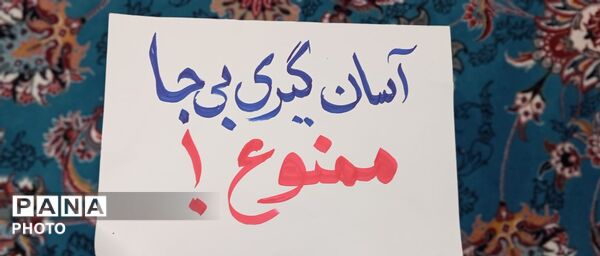 آسان گیری بی جا
ممنوع !
PANA
PHOTO